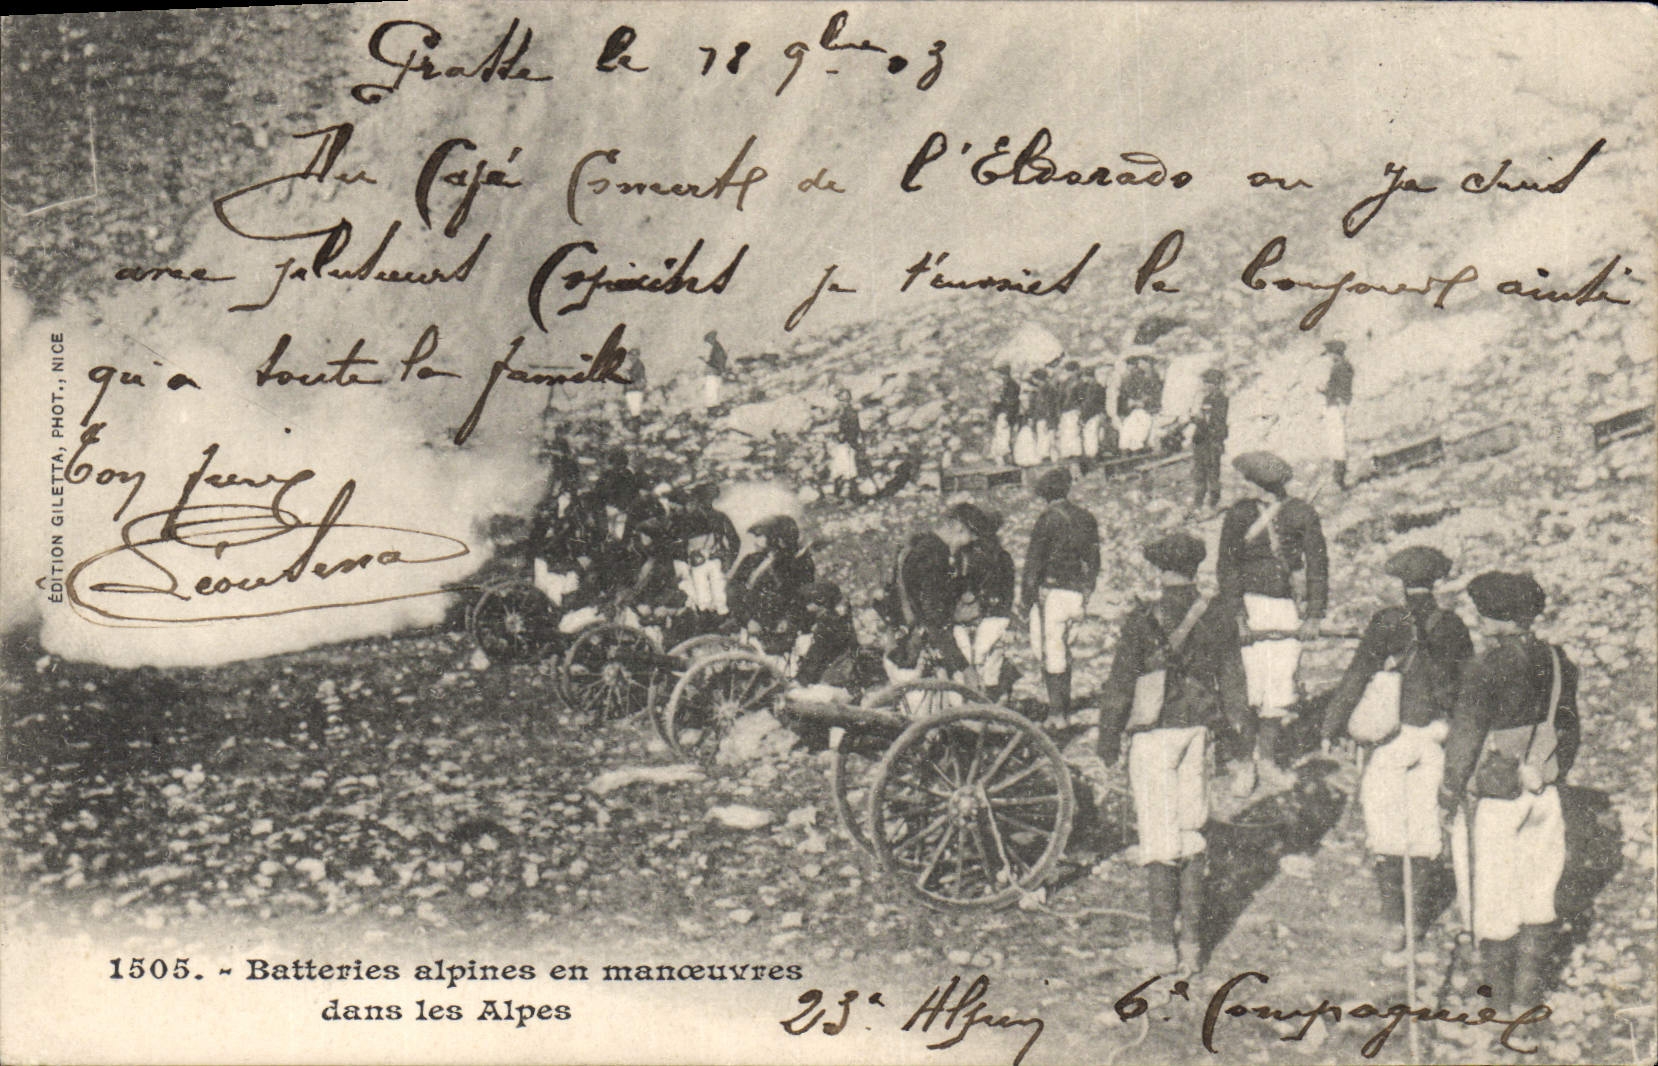 Grasse le 18 9bre 03
Au Café Concerts de l'Eldorado ou je suis
avec plusieurs Copains je t'envoies le bonjours ainsi
qu'a toute la famille
Ton frère
ÉDITION GILETTA, PHOT., NICE
1505. - Batteries alpines en manœuvres
dans les Alpes
23e Alpin 6e Compagnie